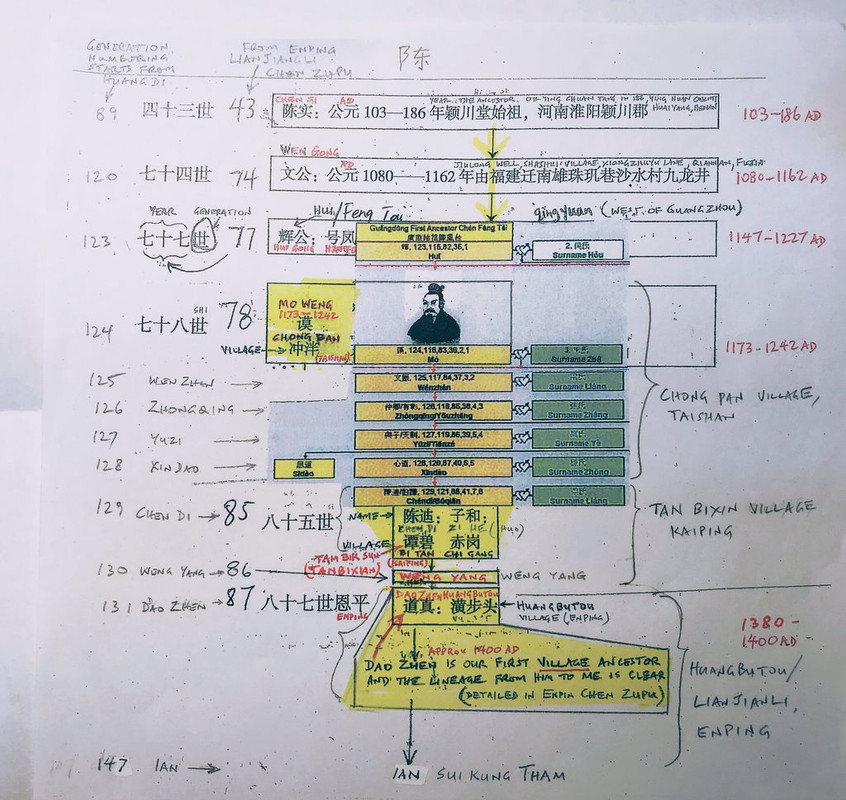 GENERATION NUMBERING STARTS FROM HUANGDI
FROM ENPING LIANJIANGLI CHEN ZUPU
陈
89 四十三世 43
CHEN SHI AD
陈实：公元 103—186 年颍川堂始祖，河南淮阳颍川郡
103-186 AD
WEN GONG
120 七十四世 74
文公：公元 1080——1162 年由福建迁南雄珠玑巷沙水村九龙井
AD JIULONG WELL, SHASHUI VILLAGE,
1080-1162 AD
YEAR GENERATION
HUI/Feng Tou
qingyuan (WEST OF GUANGZHOU)
123 七十七世 77
辉公：号凤
HUI GONG
Guangdong First Ancestor Chén Fèng Tái
辉, 123,115,82,35,1
Huī
2. 何氏
Surname Hóu
1147-1227 AD
SHI
124 七十八世 78
MO WENG
1173-1242
谟
CHONG PAN
VILLAGE → 冲泮
(TAISHAN)
谟, 124,116,83,36,2,1
Mó
1173-1242 AD
CHONG PAN VILLAGE, TAISHAN
125 WEN ZHAN →
125,117,84,37,3,2
Wénzhān
Surname Liáng
126 ZHONGQING →
126,118,85,38,4,3
Zhòngqīng/Yǒuzhāng
Surname Zhāng
127 YUZI →
127,119,86,39,5,4
Yúzǐ/Tiānzé
Surname Yè
128 XINDAO →
思道
Sīdào
心道, 128,120,87,40,6,5
Xīndào
Surname Zhōng
129 CHEN DI → 85 八十五世
129,121,88,41,7,6
Chéndí/Bóqiān
Surname Liáng
NAME → 陈迪：子和；
CHEN DI ZI HE (HUO)
VILLAGE 谭碧 赤岗
BI TAN CHI GANG
(KAIPING)
TAM BIK SUN (TANBIXIAN)
TAN BIXIN VILLAGE KAIPING
130 WENG YANG → 86
WENG YANG WENG YANG
131 DAO ZHEN → 87 八十七世恩平
ENPING
DAO ZHEN HUANGBUTOU
道真：潢步头
← HUANGBUTOU VILLAGE (ENPING)
1380-1400 AD
APPROX 1400 AD
DAO ZHEN IS OUR FIRST VILLAGE ANCESTOR
AND THE LINEAGE FROM HIM TO ME IS CLEAR
(DETAILED IN ENPIN CHEN ZUPU)
HUANGBUTOU/ LIANJIANLI, ENPING
147 IAN →
IAN SUI KUNG THAM